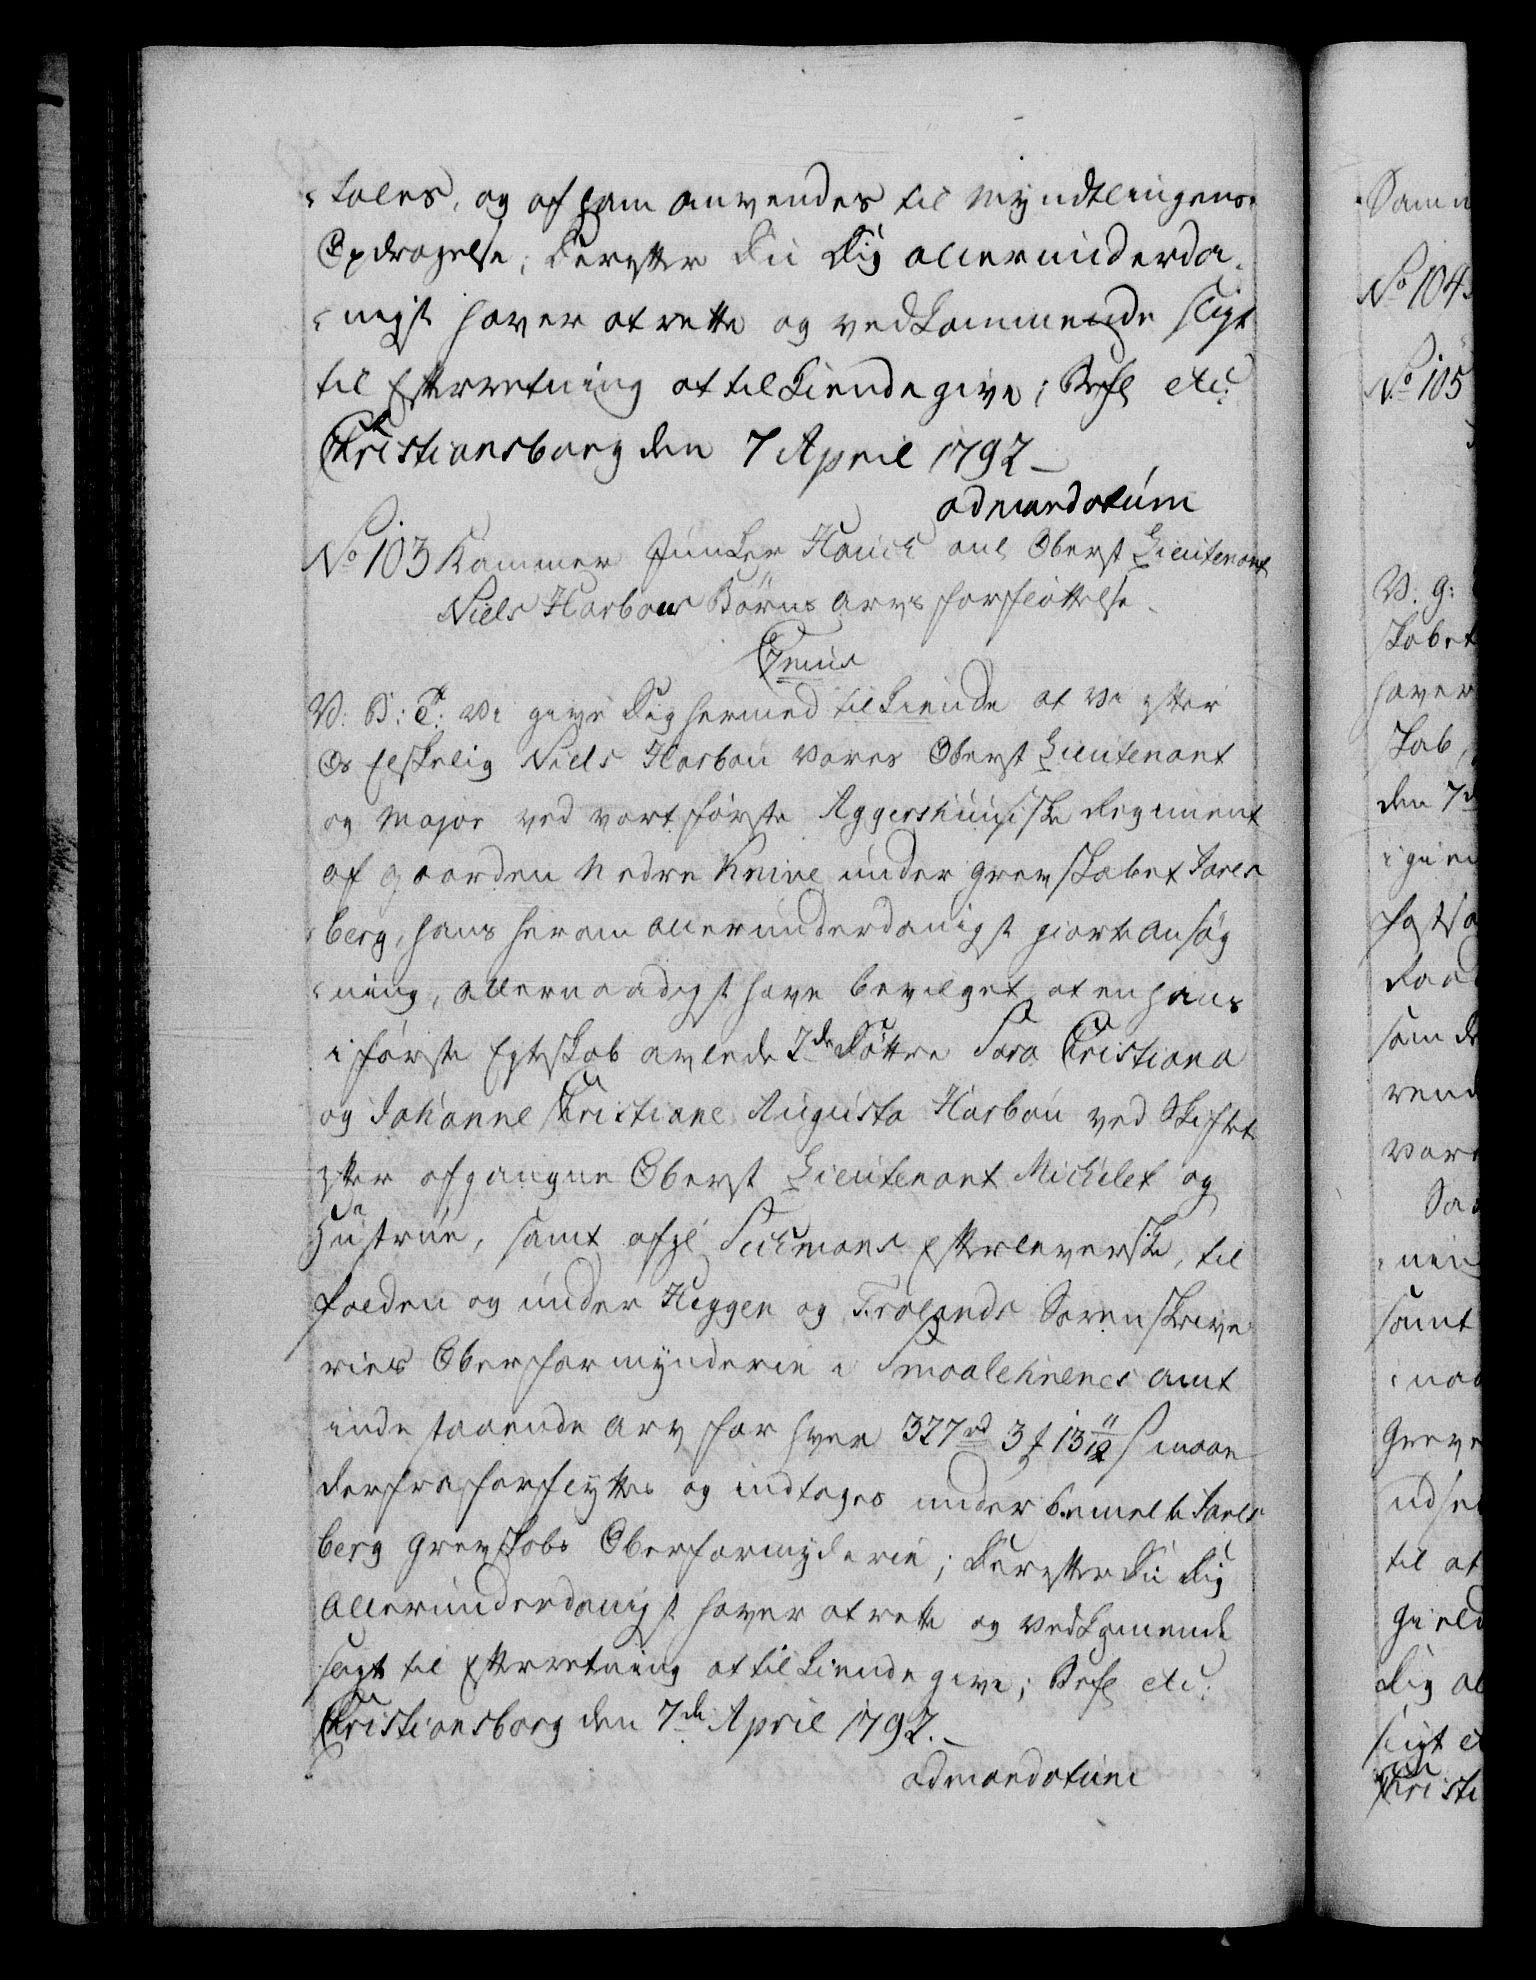 tales, og af ham anvendes til Myndtlingens
Opdragelse; Derefter Du Dig allerunderda-
nigst haver at rette og vedkommende sligt
til Efterretning at tilkiendegive; Befl etc:
Christiansborg den 7 April 1792 –
ad mandatum
No 103 Kammer Junker Hauch anl Oberst Lieutenant
Niels Harbou Børns Arvs forfløttelse.
C7mus
V. B: T: Vi give Dig hermed tilkiende at Vi efter
Os Elskelig Niels Harbou vores Oberst Lieutenant
og Major ved vort første Aggershuusiske Regiment
af gaarden Nedre Knive under grevskabet Jarls
berg, hans herom allerunderdanigst giorte Ansøg
ning, allernaadigst have bevilget, at en hans
i første Egteskab avlede 2de Døttre Sara Christiana
og Johanne Christiane Augusta Harbou ved Skiftet
efter afgangne Oberst Lieutenant Michelet og
Hustrue, samt afgl Sechmans Efterleverske, til
faldne og under Heggen og Frølands Sorenskrive
ries Oberformynderie i Smaalehnenes Amt
indestaaende Arv for hver 327 rd 3 ƒ 13 11/12 s maae
derfra forflyttes og indtages under bemelte Jarls
berg Grevskabs Oberformynderie; Derefter Du Dig
allerunderdanigst haver at rette og vedkommende
sligt til Efterretning at tilkiende give; Befl etc:
Christiansborg den 7de April 1792. –
ad mandatum
Samm
No 104
No 105
V: G:
skabet
haver
Skab,
den 7d
igien
fastsa
Raad
som de
rend
vare
Sa
nin
samt
naa
Greve
udse
til at
Gield
Dig al
sligt e
Christi